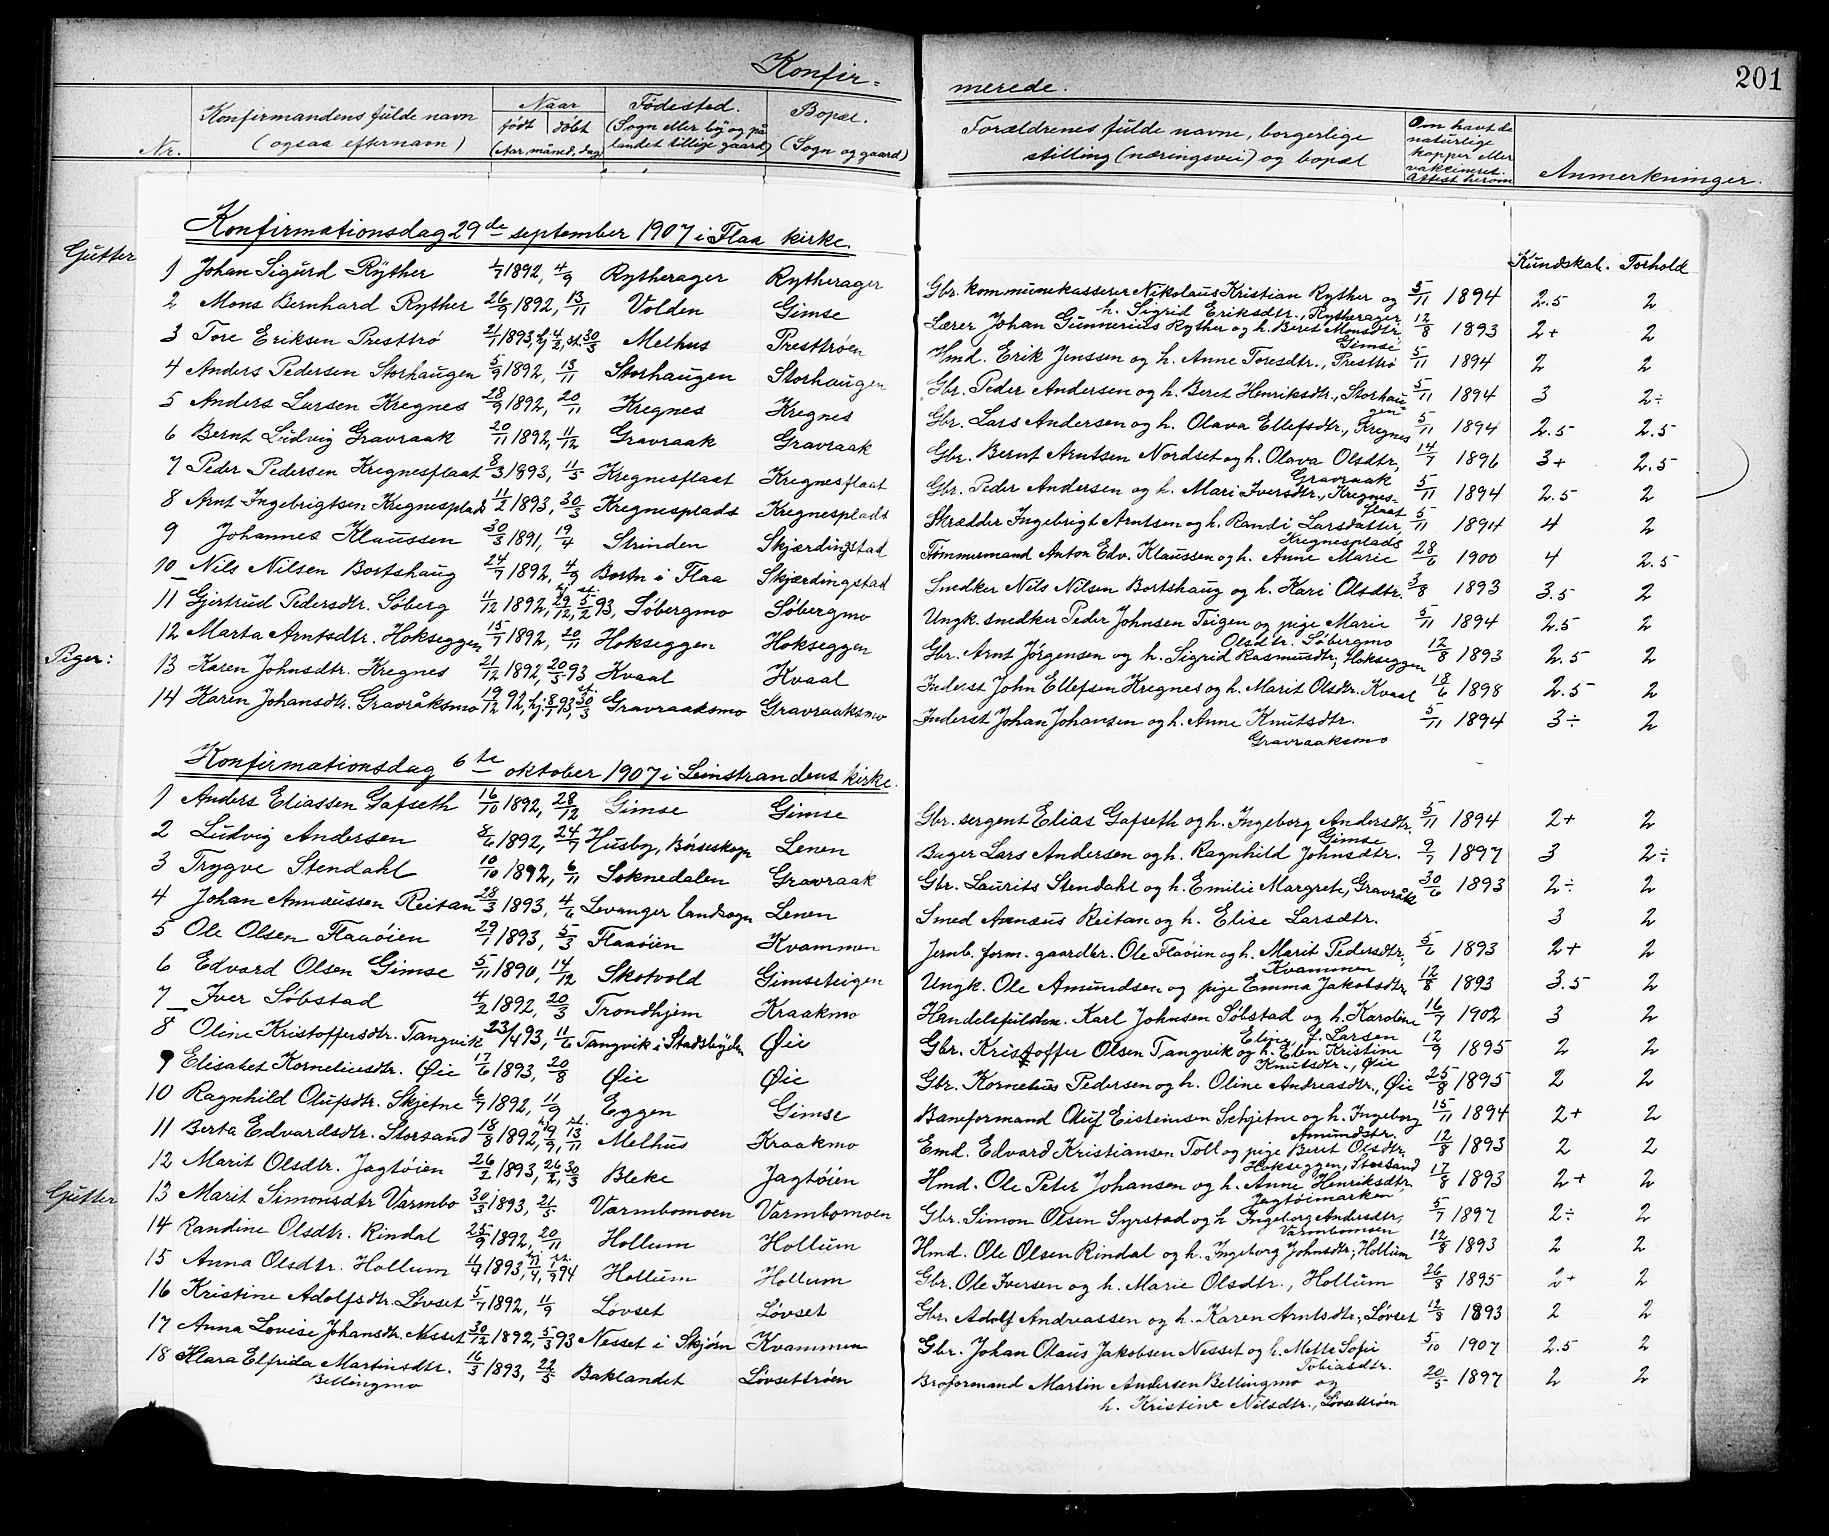 Konfir-
merede.
201
Nr.
Konfirmandens fulde navn
(ogsaa efternavn)
Naar
født | döbt
(Aar, måned, dag)
Födested.
(Sogn eller by og på
landet tillige gaard)
Bopæl.
(Sogn og gaard)
Forældrenes fulde navne, borgerlige
stilling (næringsvei) og bopæl
Om havt de
naturlige
kopper eller
vakcineret.
Attest herom
Anmerkninger.
Konfirmationsdag 29de september 1907 i Flaa kirke.
Kundskab. Forhold
Gutter
1 Johan Sigurd Ryther 1/7 1892, 4/9 Rytherager Rytherager Gbr. kommunekasserer Nikolaus Kristian Ryther og 5/11 1894 2.5 2
h. Sigrid Eriksdtr., Rytherager
2 Mons Bernhard Ryther 26/9 1892, 13/11 Volden Gimse Lærer Johan Gunnerius Ryther og h. Beret Monsdtr 12/8 1893 2+ 2
Gimse
3 Tore Eriksen Presttrö 21/1 1893, hj 4/2, st. 30/3 Melhus Presttröen Hmd. Erik Jenssen og h. Anne Toresdtr., Presttrö 5/11 1894 2 2
4 Anders Pedersen Storhaugen 5/9 1892, 13/11 Storhaugen Storhaugen Gbr. Peder Andersen og h. Beret Henriksdtr., Storhau 5/11 1894 3 2÷
gen
5 Anders Larsen Kregnes 28/9 1892, 20/11 Kregnes Kregnes Gbr. Lars Andersen og h. Olava Ellefsdtr., Kregnes 5/11 1894 2.5 2.5
6 Bernt Ludvig Gravraak 20/11 1892, 11/12 Gravraak Gravraak Gbr. Bernt Arntsen Nordset og h. Olava Olsdtr, 14/7 1896 3+ 2.5
Gravraak
7 Peder Pedersen Kregnesflaat 8/3 1893, 11/5 Kregnesflaat Kregnesflaat Gbr. Peder Andersen og h. Mari Iversdtr., Kregnes- 5/11 1894 2.5 2
flaat
8 Arnt Ingebrigtsen Kregnesplads 11/2 1893, 30/3 Kregnesplads Kregnesplads Skrædder Ingebrigt Arntsen og h. Randi Larsdatter 5/11 1894 4 2
Kregnesplads
9 Johannes Klaussen 30/3 1891, 19/4 Strinden Skjærdingstad Tømmermand Anton Edv. Klaussen og h. Anne Marie 28/6 1900 4 2.5
10 Nils Nilsen Bortshaug 24/7 1892, 4/9 Bortn i Flaa Skjærdingstad Snedker Nils Nilsen Bortshaug og h. Kari Olsdtr. 3/8 1893 3.5 2
11 Gjertrud Pedersdtr. Söberg 11/12 1892, hj. 29/12, st. 5/2 93, Söbergmo Söbergmo Ungk. snedker Peder Johnsen Teigen og pige Marie 5/11 1894 2.5 2
Olsdtr. Söbergmo
Piger:
12 Marta Arntsdtr. Hokseggen 15/7 1892, 20/11 Hokseggen Hokseggen Gbr. Arnt Jörgensen og h. Sigrid Rasmusdtr., Hokseggen 12/8 1893 2.5 2
13 Karen Johnsdtr. Kregnes 21/12 1892, 20/5 93 Kvaal Kvaal Inderst John Ellefsen Kregnes og h. Marit Olsdtr. Kvaal 18/6 1898 2.5 2
14 Karen Johansdtr. Gravråksmo 19/12 92, hj. 8/1 93, st. 30/3 Gravraaksmo Gravraaksmo Inderst Johan Johansen og h. Anne Knutsdtr. 5/11 1894 3÷ 2
Gravraaksmo
Konfirmationsdag 6te oktober 1907 i Leinstrandens kirke.
1 Anders Eliassen Gafseth 16/10 1892, 28/12 Gimse Gimse Gbr. sergent Elias Gafseth og h. Ingeborg Andersdtr, 5/11 1894 2+ 2
Gimse
2 Ludvig Andersen 8/6 1892, 24/7 Husby, Börseskogn Lenen Bager Lars Andersen og h. Ragnhild Johnsdtr. 9/7 1897 3 2÷
3 Trygve Stendahl 10/10 1892, 6/11 Soknedalen Gravraak Gbr. Laurits Stendahl og h. Emilie Margrete, Gravråk 30/6 1893 2÷ 2
4 Johan Annæussen Reitan 28/3 1893, 4/6 Levanger landsogn Lenen Smed Annæus Reitan og h. Elise Larsdtr. 3 2
5 Ole Olsen Flaaöien 29/1 1893, 5/3 Flaaöien Kvammen Jernb. form. gaardbr. Ole Flaöien og h. Marit Pedersdtr, 5/6 1893 2+ 2
Kvammen
6 Edvard Olsen Gimse 5/11 1890, 14/12 Skotvold Gimseteigen Ungk. Ole Amundsen og pige Emma Jakobsdtr 12/8 1893 3.5 2
7 Iver Söbstad 4/2 1892, 20/3 Trondhjem Kraakmo Handelsfuldm. Karl Johnsen Söbstad og h. Karoline 16/7 1902 3 2
Eline, f. Larsen
8 Oline Kristoffersdtr. Tangvik 23/4 93, 11/6 Tangvik i Stadsbyden Øie Gbr. Kristoffer Olsen Tangvik og h. Elen Kristine 12/9 1895 2 2
Knutsdtr., Øie
9 Elisabet Korneliusdtr. Øie 17/6 1893, 20/8 Øie Øie Gbr. Kornelius Pedersen og h. Oline Andreasdtr., Øie 25/8 1895 2 2
10 Ragnhild Olufsdtr. Skjetne 6/7 1892, 11/9 Eggen Gimse Baneformand Oluf Eisteinsen Schjetne og h. Ingeborg 15/11 1894 2+ 2
Amundstr.
11 Berta Edvardsdtr. Storsand 18/8 1892, hj. 19/9, st. 13/11 Melhus Kraakmo Emd. Edvard Kristiansen Toll og pige Berit Olsdtr. 12/8 1893 2 2
Hokseggen, Storsand
12 Marit Olsdtr. Jagtöien 26/2 1893, 26/2 30/3 Bleke Jagtöien Hmd. Ole Peter Johansen og h. Anne Henriksdtr, 17/8 1893 2+ 2
Jagtöimarken
Gutter
13 Marit Simonsdtr Varmbo 30/3 1893, 21/5 Varmbomoen Varmbomoen Gbr. Simon Olsen Syrstad og h Ingeborg Andersdtr, 5/7 1897 2÷ 2
Varmbomoen
14 Randine Olsdtr. Rindal 25/9 1892, 20/11 Hollum Hollum Hmd. Ole Olsen Rindal og h. Ingeborg Johnsdtr, Hollum 12/8 1893 2 2
15 Anna Olsdtr. Hollum 11/4 1893, 94 Hollum Hollum Gbr. Ole Iversen og h. Marie Olsdtr., Hollum 26/8 1895 2+ 2
16 Kristine Adolfsdtr. Lövset 5/7 1892, 11/9 Lövset Lövset Gbr. Adolf Andreassen og h. Karen Arntsdtr, Lövset 12/8 1893 2 2
17 Anna Lovise Johansdtr. Nesset 30/12 1892, 5/3 93 Nesset i Skjörn Kvammen Gbr. Johan Olaus Jakobsen Nesset og h. Mette Sofie 5/10 1907 2.5 2
Tobiasdtr.
18 Klara Elfrida Martinsdtr. 16/3 1893, 22/5 Baklandet Lövsettröen Broformand Martin Andersen Bellingmo og 20/5 1897 2 2
Bellingmo
h. Kristine Nilsdtr., Lövsettröen